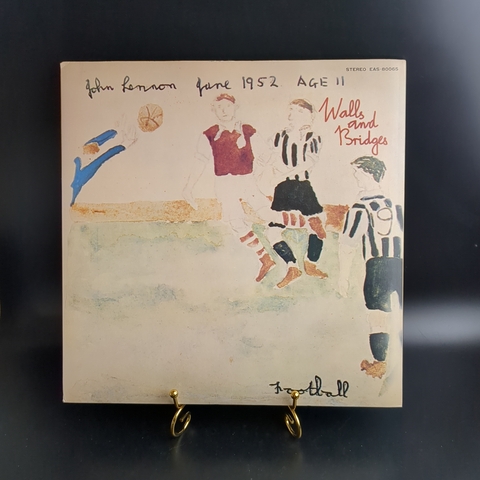 STEREO EAS-80065
John Lennon June 1952 AGE 11
Walls
and
Bridges
9
Football